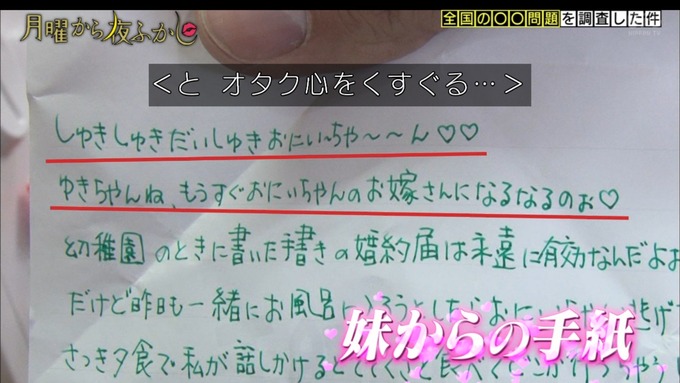 月曜から夜ふかし
全国の〇〇問題を調査した件
＜と オタク心をくすぐる…＞
しゅきしゅきだいしゅきおにいちゃ〜〜ん♡♡
ゆきちゃんね、もうすぐおにいちゃんのお嫁さんになるなるのぉ♡
幼稚園のときに書いた手書きの婚約届は永遠に有効なんだよぉ
だけど昨日も一緒にお風呂に
妹からの手紙
さっき夕食で私が話しかけると